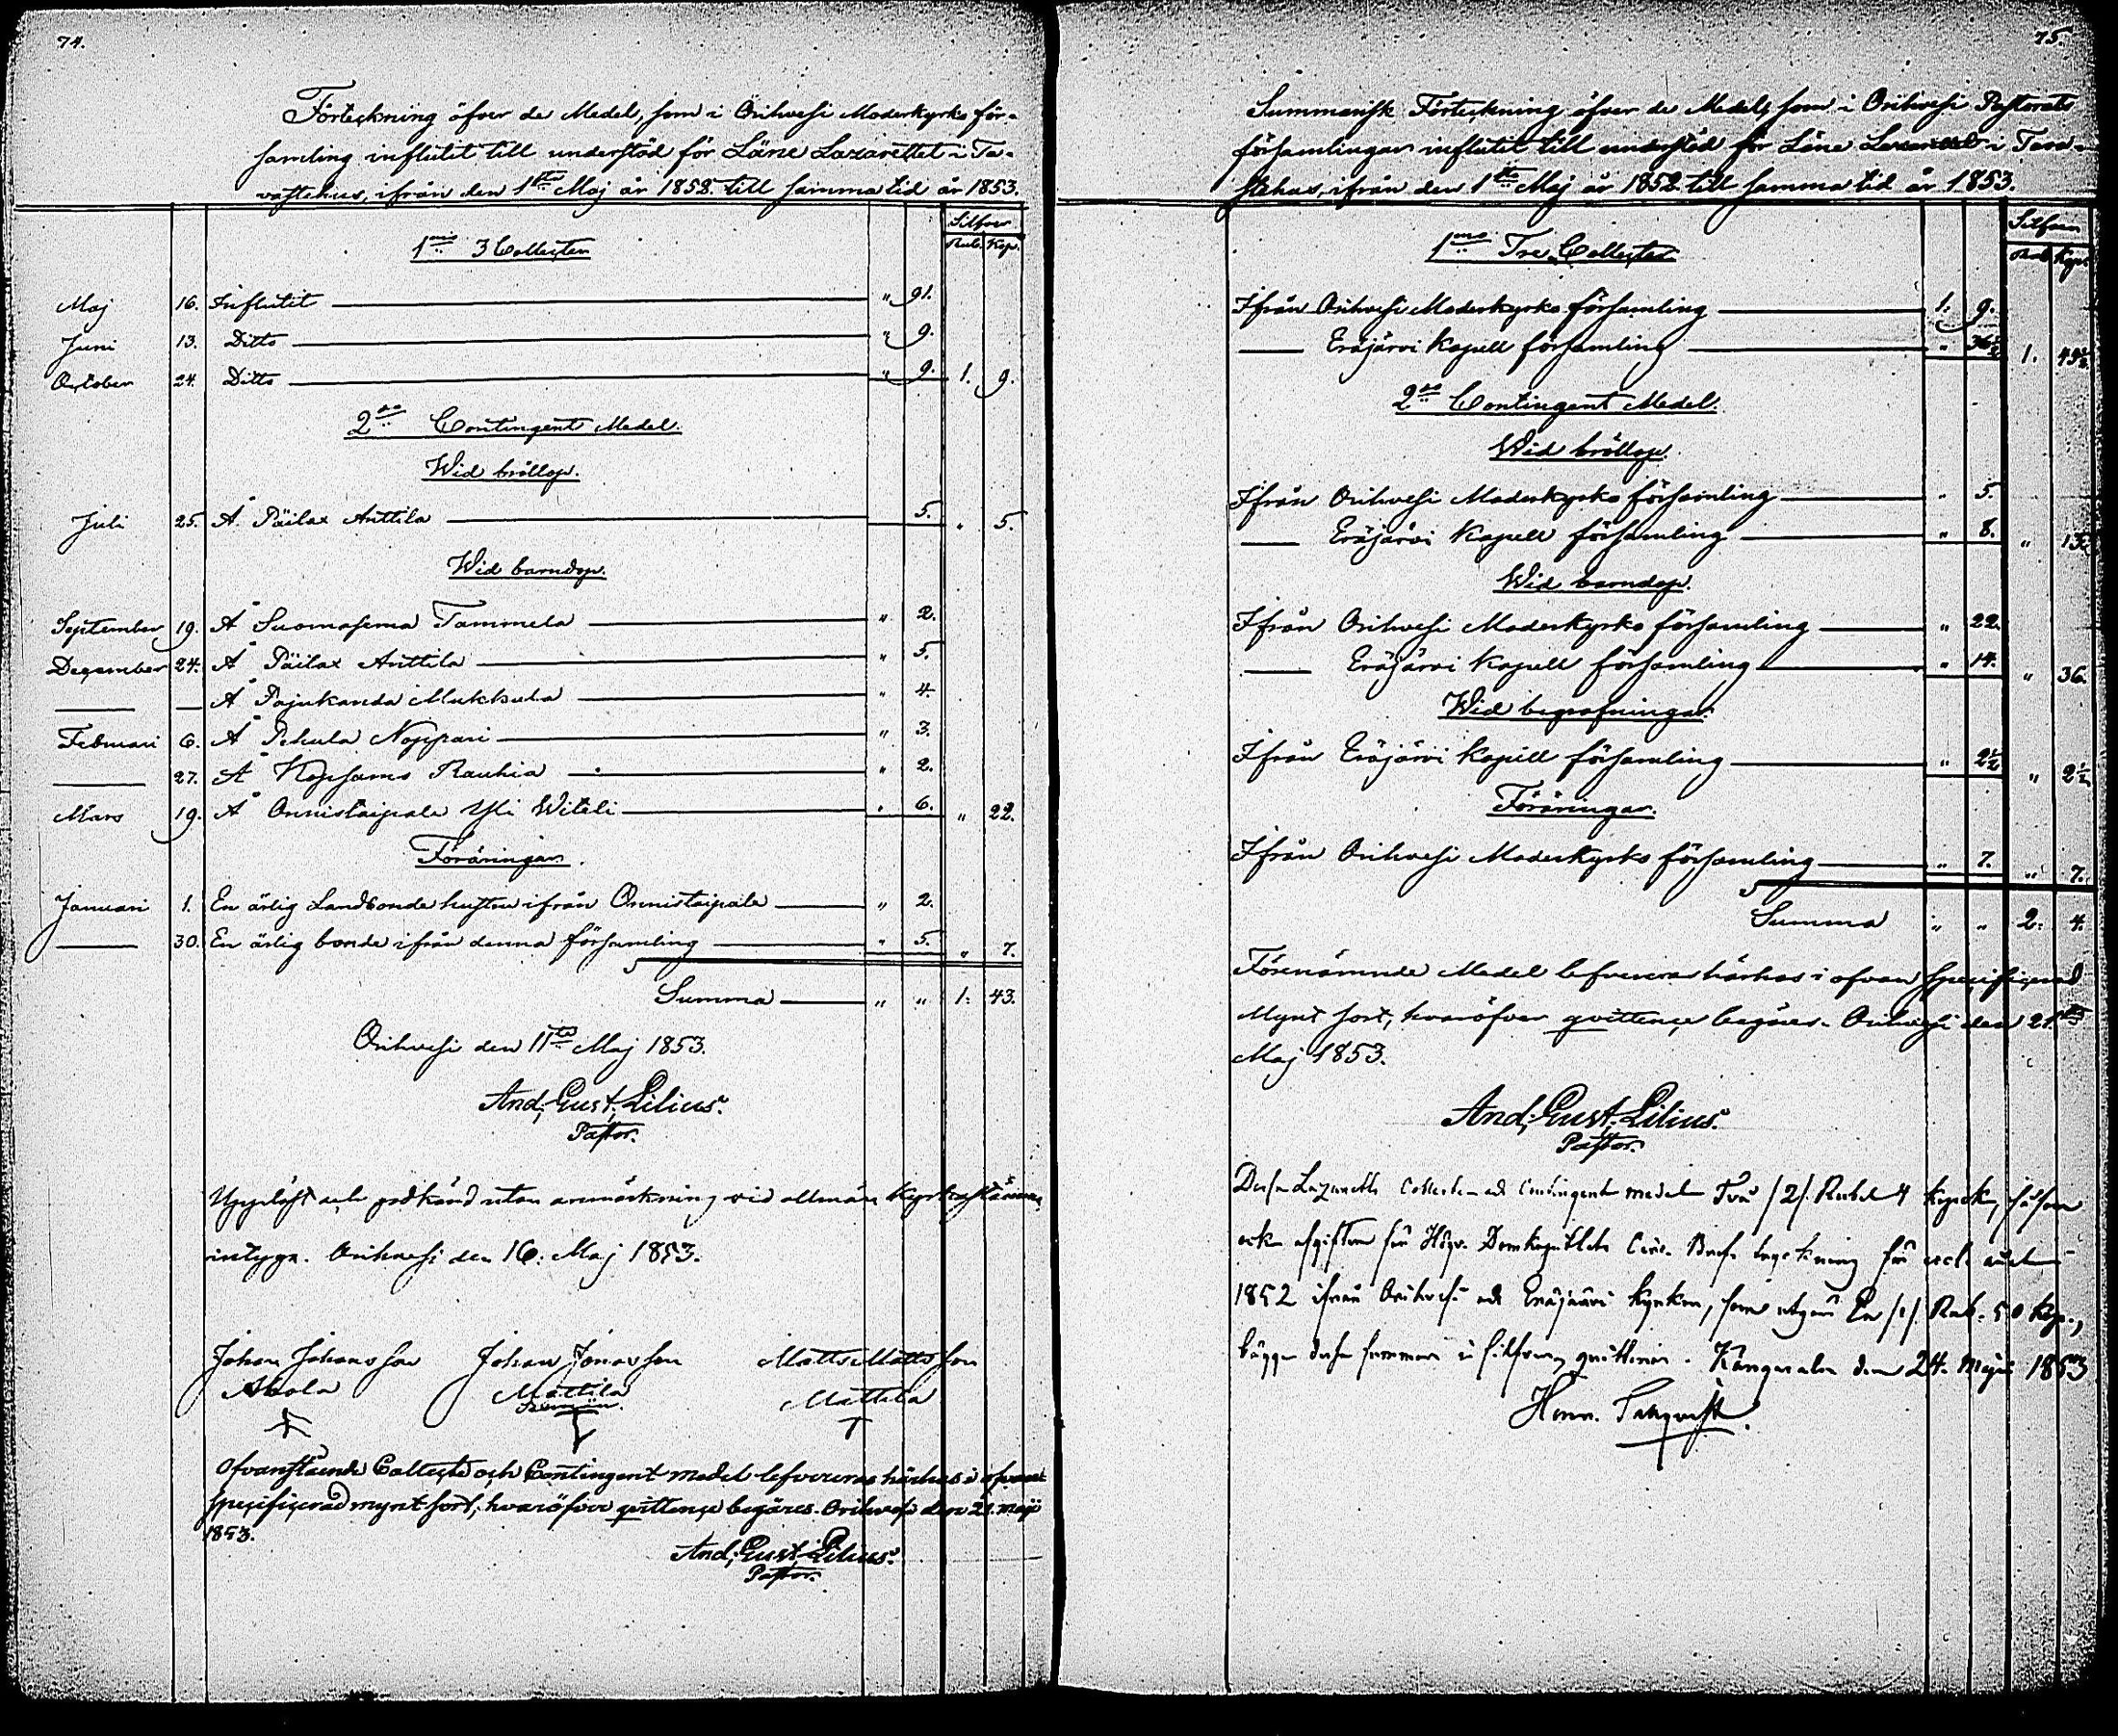 74.
Förteckning öfver de Medel, som i Orihvesi Moderkyrko för-
samling influtit till understöd för Läns Lazarettet i Ta-
vastehus, ifrån den 1sta Maj år 1852 till samma tid år 1853.
Silfver
Rub. Kop.
1mo 3 Collecter
Maj 16. Influtit " 91.
Juni 13. Ditto " 9.
October 24. Ditto " 9. 1. 9.
2do Contingent Medel.
Wid bröllop.
Juli 25. Å Päilax Anttila 5. " 5.
Wid barndop.
September 19. Å Suomasema Tammela " 2.
December 24. Å Päilax Anttila " 5.
Å Pajukanda Mukkula " 4.
Februari 6. Å Pehula Noppari " 3.
27. Å Kopsamo Rauhia " 2.
Mars 19. Å Onnistaipale Yli Witeli " 6. " 22.
Föräringar.
Januari 1. En ärlig Landbonde hustru ifrån Onnistaipale " 2.
30. En ärlig bonde ifrån denna församling " 5. " 7.
Summa " " 1. 43.
Orihvesi den 11te Maj 1853.
And. Gust. Lilius.
Pastor.
Uppläst och godkänd utan anmärkning vid allmän Kyrkostämma,
intyga. Orihvesi den 16. Maj 1853.
Johan Johansson Johan Jonasson Matts Mattsson
Ahola Mattila Mattila
Ofvanstående Collecte och Contingent medel lefvereras härhos i ofvan
specificerad myntsort, hvaröfver qvittence begäres. Orihvesi den 21. Maji
1853.
And. Gust. Lilius.
Pastor.
75.
Summarisk Förteckning öfver de Medel, som i Orihvesi Pastorats
församlingar influtit till understöd för Läns Lazarettet i Tava-
stehus, ifrån den 1sta Maj år 1852 till samma tid år 1853.
Silfver
Rub. Kop.
1mo Tre Collecter
Ifrån Orihvesi Moderkyrko församling 1. 9.
Eräjärvi Kapell församling " 36½ 1. 45½
2do Contingent Medel.
Wid bröllop.
Ifrån Orihvesi Moderkyrko församling " 5.
Eräjärvi Kapell församling " 8. " 13.
Wid barndop.
Ifrån Orihvesi Moderkyrko församling " 22.
Eräjärvi Kapell församling " 14. " 36.
Wid begrafningar.
Ifrån Eräjärvi Kapell församling " 2½ " 2½
Föräringar.
Ifrån Orihvesi Moderkyrko församling " 7. " 7.
Summa " " 2. 4.
Förenämnde Medel lefvereras härhos i ofvan specificerad
Mynt sort, hvaröfver qvittence begäres. Orihvesi den 21sta
Maj 1853.
And. Gust. Lilius.
Pastor.
Dessa Lazaretts Collecte och Contingent medel Två /2/ Rubel 4 kopek, såsom
ock afgiften för Högv. Domkapitlets
1852 ifrån Orihvesi och Eräjärvi kyrkor, som utgör En /1/ Rub. 50 Kop.,
bägge dessa summor i silfver, quitteras. Kangasala den 24. Maji 1853
Henr.